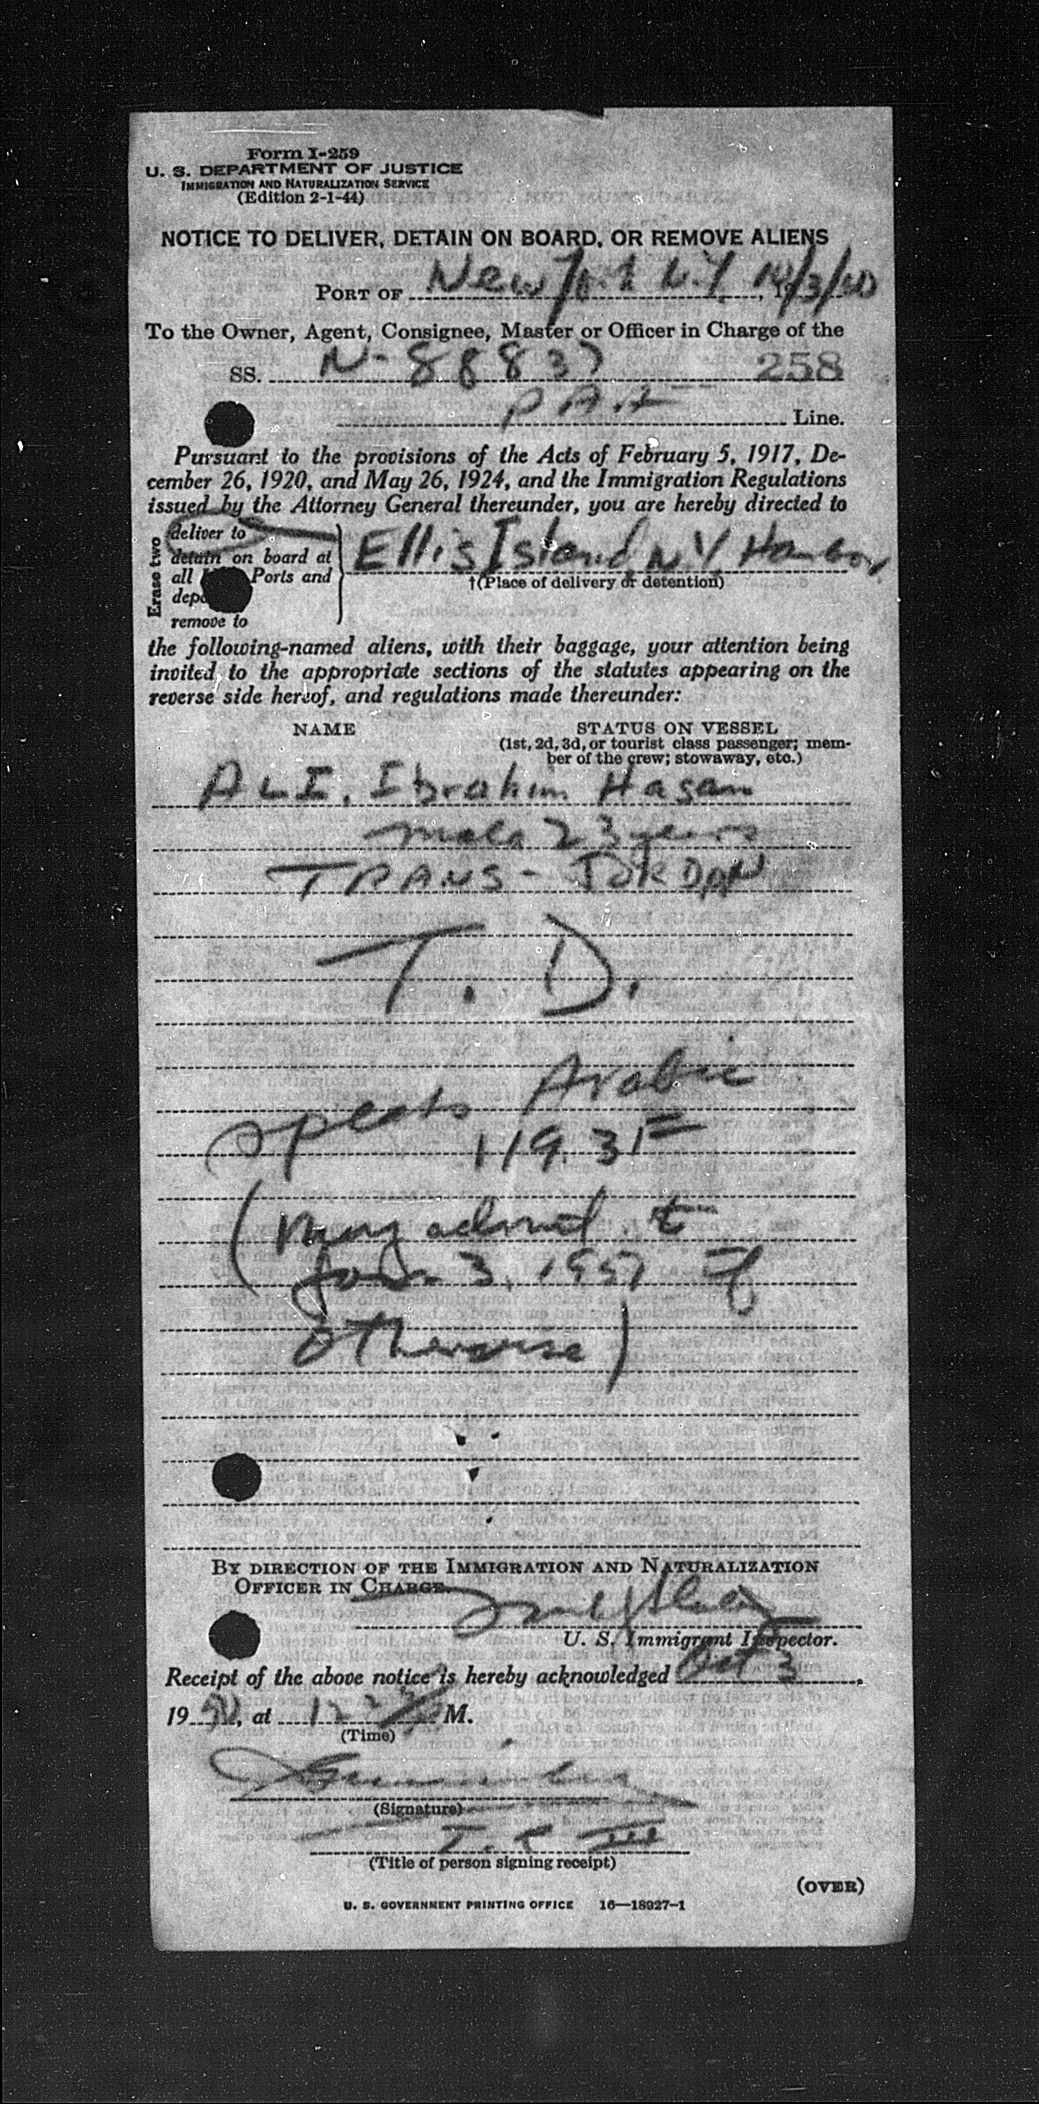 Form I-259
U. S. DEPARTMENT OF JUSTICE
IMMIGRATION AND NATURALIZATION SERVICE
(Edition 2-1-44)
NOTICE TO DELIVER, DETAIN ON BOARD, OR REMOVE ALIENS
PORT OF New York N.Y. 10/3/50
To the Owner, Agent, Consignee, Master or Officer in Charge of the
SS. N-88837 258
PAA Line.
Pursuant to the provisions of the Acts of February 5, 1917, De-
cember 26, 1920, and May 26, 1924, and the Immigration Regulations
issued by the Attorney General thereunder, you are hereby directed to
Erase two
deliver to
detain on board at
all Ports and
remove to
Ellis Island, N.Y. Harbor
†(Place of delivery or detention)
the following-named aliens, with their baggage, your attention being
invited to the appropriate sections of the statutes appearing on the
reverse side hereof, and regulations made thereunder:
NAME STATUS ON VESSEL
(1st, 2d, 3d, or tourist class passenger; mem-
ber of the crew; stowaway, etc.)
ALI, Ibrahim Hasan
male 23 years
TRANS-JORDAN
T. D.
speaks Arabic
119.3F
(may admit to
Jan. 3, 1951 if
otherwise)
BY DIRECTION OF THE IMMIGRATION AND NATURALIZATION
OFFICER IN CHARGE.
U. S. Immigrant Inspector.
Receipt of the above notice is hereby acknowledged Oct 3,
1950, at M.
(Time)
(Signature)
(Title of person signing receipt)
(OVER)
U. S. GOVERNMENT PRINTING OFFICE 16—18927-1